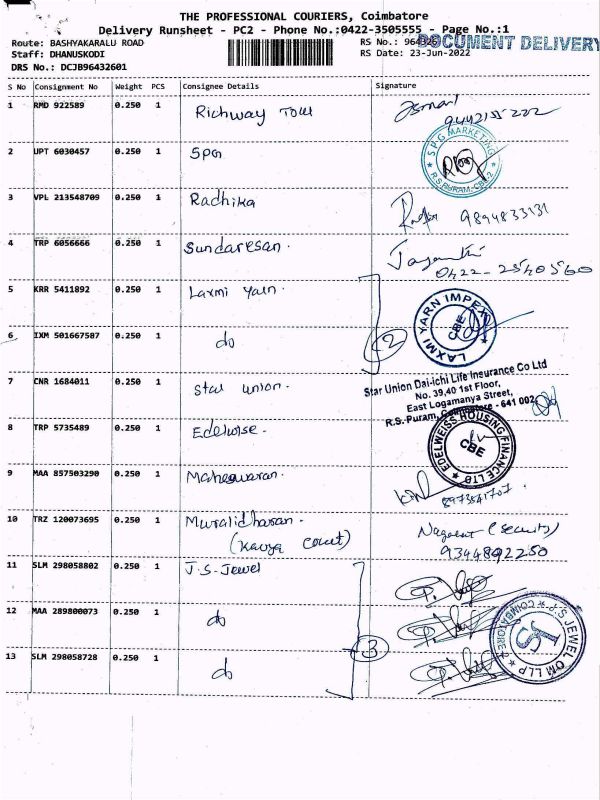 THE PROFESSIONAL COURIERS, Coimbatore
Delivery Runsheet - PC2 - Phone No.:0422-3505555 - Page No.:1
Route: BASHYAKARALU ROAD
RS No.: 96432601
DOCUMENT DELIVERY
Staff: DHANUSKODI
RS Date: 23-Jun-2022
DRS No.: DCJB96432601
S No Consignment No Weight PCS Consignee Details Signature
1 RMD 922589 0.250 1 Richway Tour
9442155222
2 UPT 6030457 0.250 1 SPG
SPG MARKETING
R.S.PURAM, CBE-2
3 VPL 213548709 0.250 1 Radhika 9894833131
4 TRP 6056666 0.250 1 Sundaresan. Jayanthi
0422-2540560
5 KRR 5411892 0.250 1 Laxmi Yarn.
LAXMI YARN IMPEX
CBE
6 IXM 501667587 0.250 1 do 2
7 CNR 1684011 0.250 1 Star union.
Star Union Dai-ichi Life Insurance Co Ltd
No. 39,40 1st Floor,
East Logamanya Street,
R.S. Puram, Coimbatore - 641 002
8 TRP 5735489 0.250 1 Edelwise.
EDELWEISS HOUSING FINANCE LTD
CBE
9 MAA 857503290 0.250 1 Maheswaran.
8973541707.
10 TRZ 120073695 0.250 1 Muralidharan.
(Kavya Court)
(Security)
9344892250
11 SLM 298058802 0.250 1 J.S-Jewel
12 MAA 289800073 0.250 1 do
13 SLM 298058728 0.250 1 do 3
J.S JEWEL OM LLP
COIMBATORE
JS